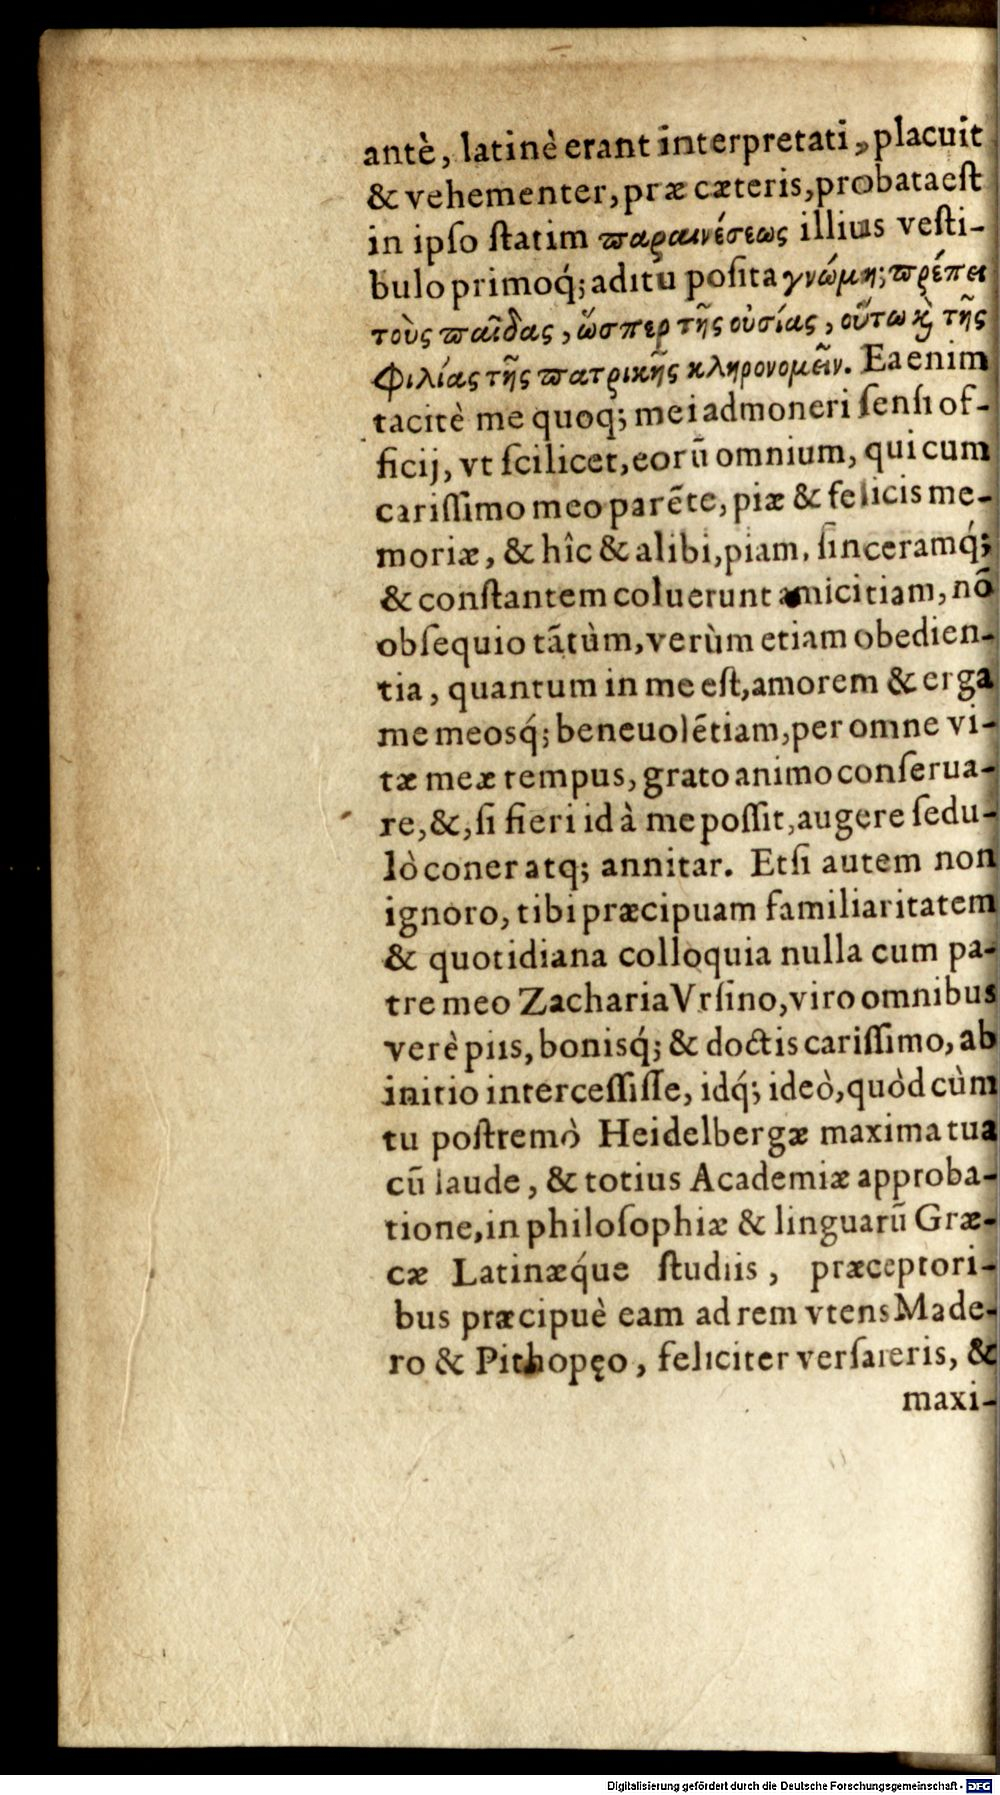 antè, latinè erant interpretati, placuit
& vehementer, præ cæteris, probata est
in ipſo ſtatim παραινέσεως illius veſti-
bulo primoq́; aditu poſita γνώμη; πρέπει
τοὺς παῖδας, ὥσπερ τῆς οὐσίας, οὕτω κὶ τῆς
φιλίας τῆς πατρικῆς κληρονομεῖν. Ea enim
tacitè me quoq; mei admoneri ſenſi of-
ficij, vt ſcilicet, eorũ omnium, qui cum
cariſſimo meo parẽte, piæ & felicis me-
moriæ, & hîc & alibi, piam, ſinceramq́;
& conſtantem coluerunt amicitiam, nõ
obſequio tãtùm, verùm etiam obedien-
tia, quantum in me eſt, amorem & erga
me meosq́; beneuolẽtiam, per omne vi-
tæ meæ tempus, grato animo conſerua-
re, &, ſi fieri id à me poſſit, augere ſedu-
lò coner atq; annitar. Etſi autem non
ignoro, tibi præcipuam familiaritatem
& quotidiana colloquia nulla cum pa-
tre meo Zacharia Vrſino, viro omnibus
verè piis, bonisq́; & doctis cariſſimo, ab
initio interceſſiſſe, idq́; ideò, quòd cùm
tu poſtremò Heidelbergæ maxima tua
cũ laude, & totius Academiæ approba-
tione, in philoſophiæ & linguarũ Græ-
cæ Latinæq́ue ſtudiis, præceptori-
bus præcipuè eam ad rem vtens Made-
ro & Pithopęo, feliciter verſareris, &
maxi-
Digitalisierung gefördert durch die Deutsche Forschungsgemeinschaft - DFG